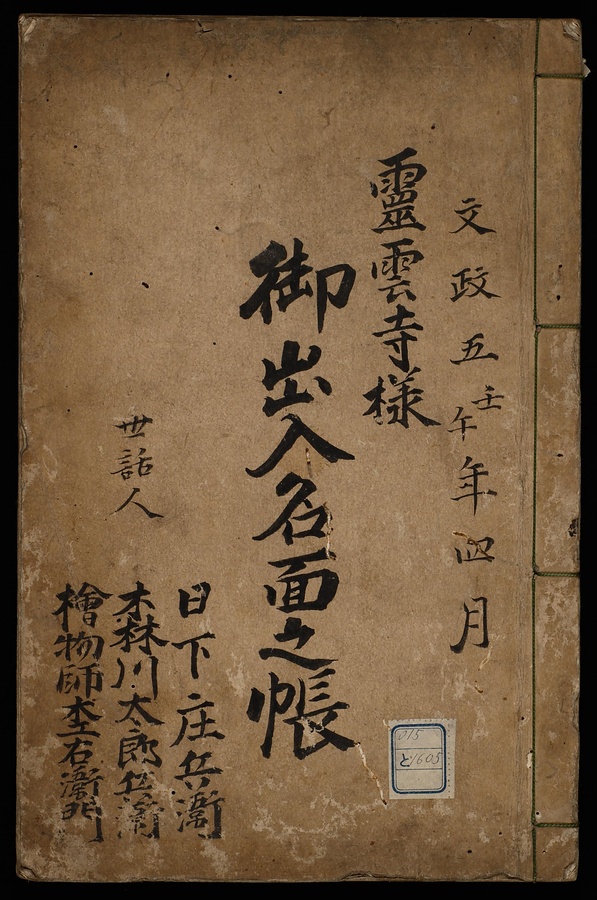 文政五壬午年四月
靈雲寺様
御出入名面之帳
世話人
日下庄兵衛
森川太郎兵衛
檜物師杢右衛門
と1605